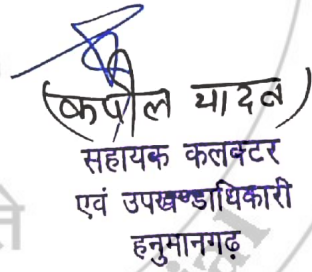 (कपील यादव)
सहायक कलक्टर
एवं उपखण्डाधिकारी
हनुमानगढ़